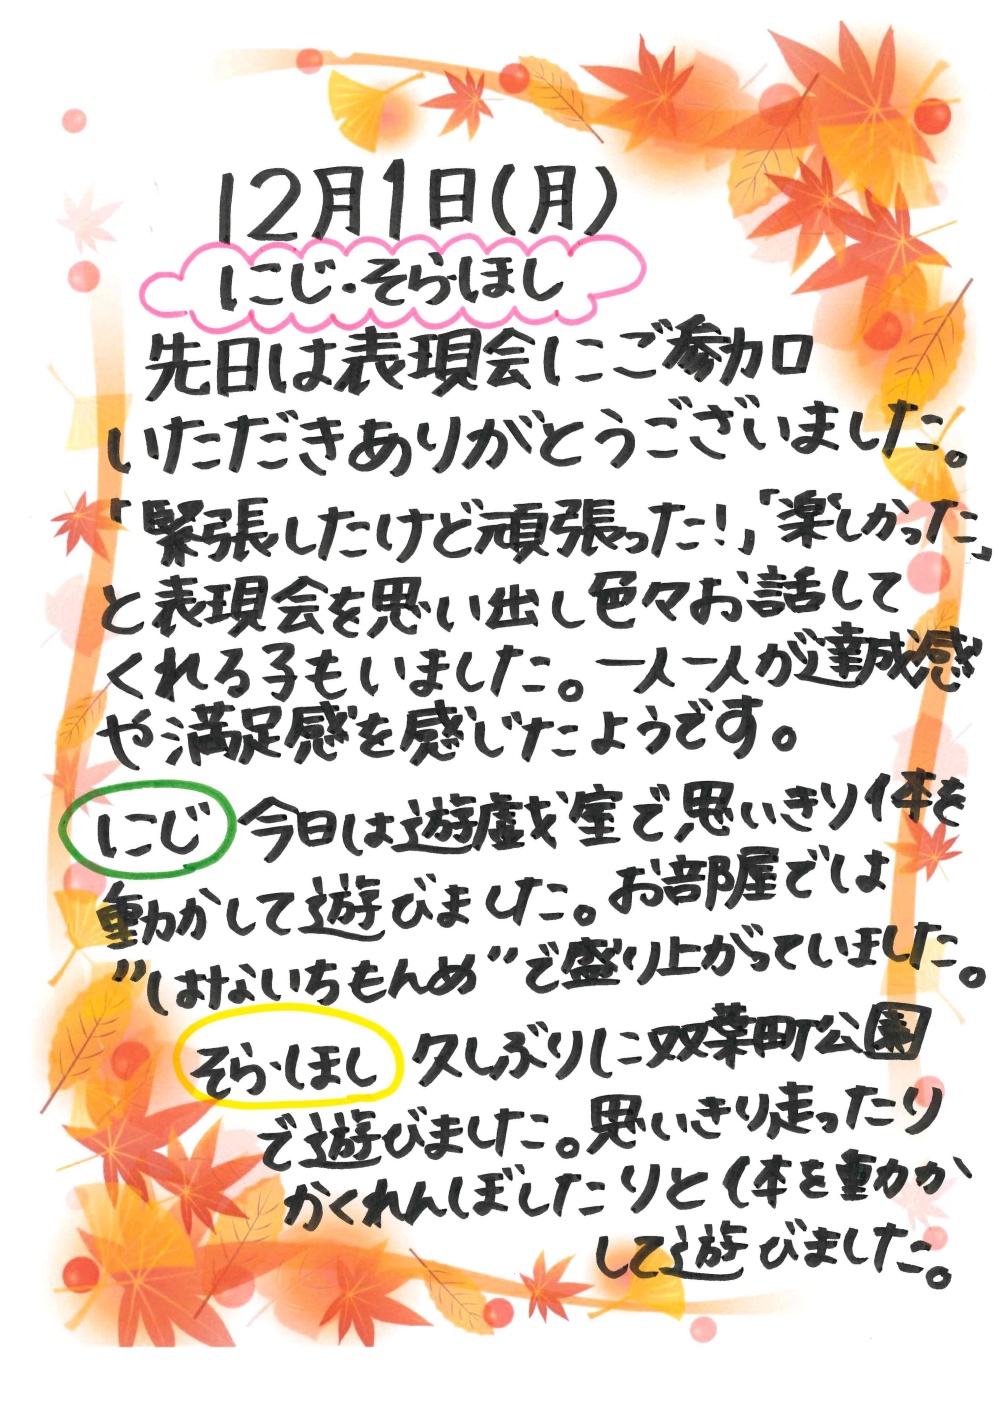 12月1日(月)
にじ・そら・ほし
先日は表現会にご参加
いただきありがとうございました。
「緊張したけど頑張った!」「楽しかった」
と表現会を思い出し色々お話して
くれる子もいました。一人一人が達成感
や満足感を感じたようです。
にじ 今日は遊戯室で思いきり体を
動かして遊びました。お部屋では
"はないちもんめ"で盛り上がっていました。
そら・ほし 久しぶりに双葉町公園
で遊びました。思いきり走ったり
かくれんぼしたりと体を動か
して遊びました。